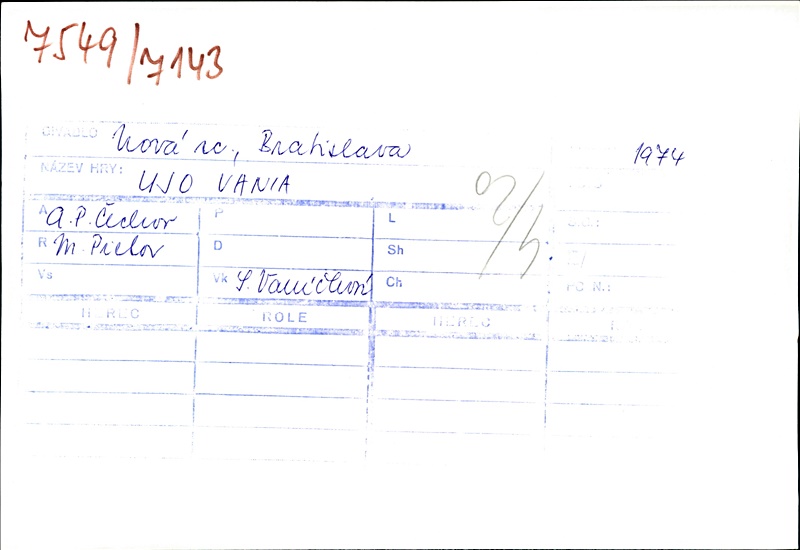 7549/7143
DIVADLO Nová sc., Bratislava 1974
NÁZEV HRY: UJO VANIA
A A.P. Čechov P L
R M. Pietor D Sh
Vs Vk S. Vaníčková Ch
HEREC ROLE HEREC